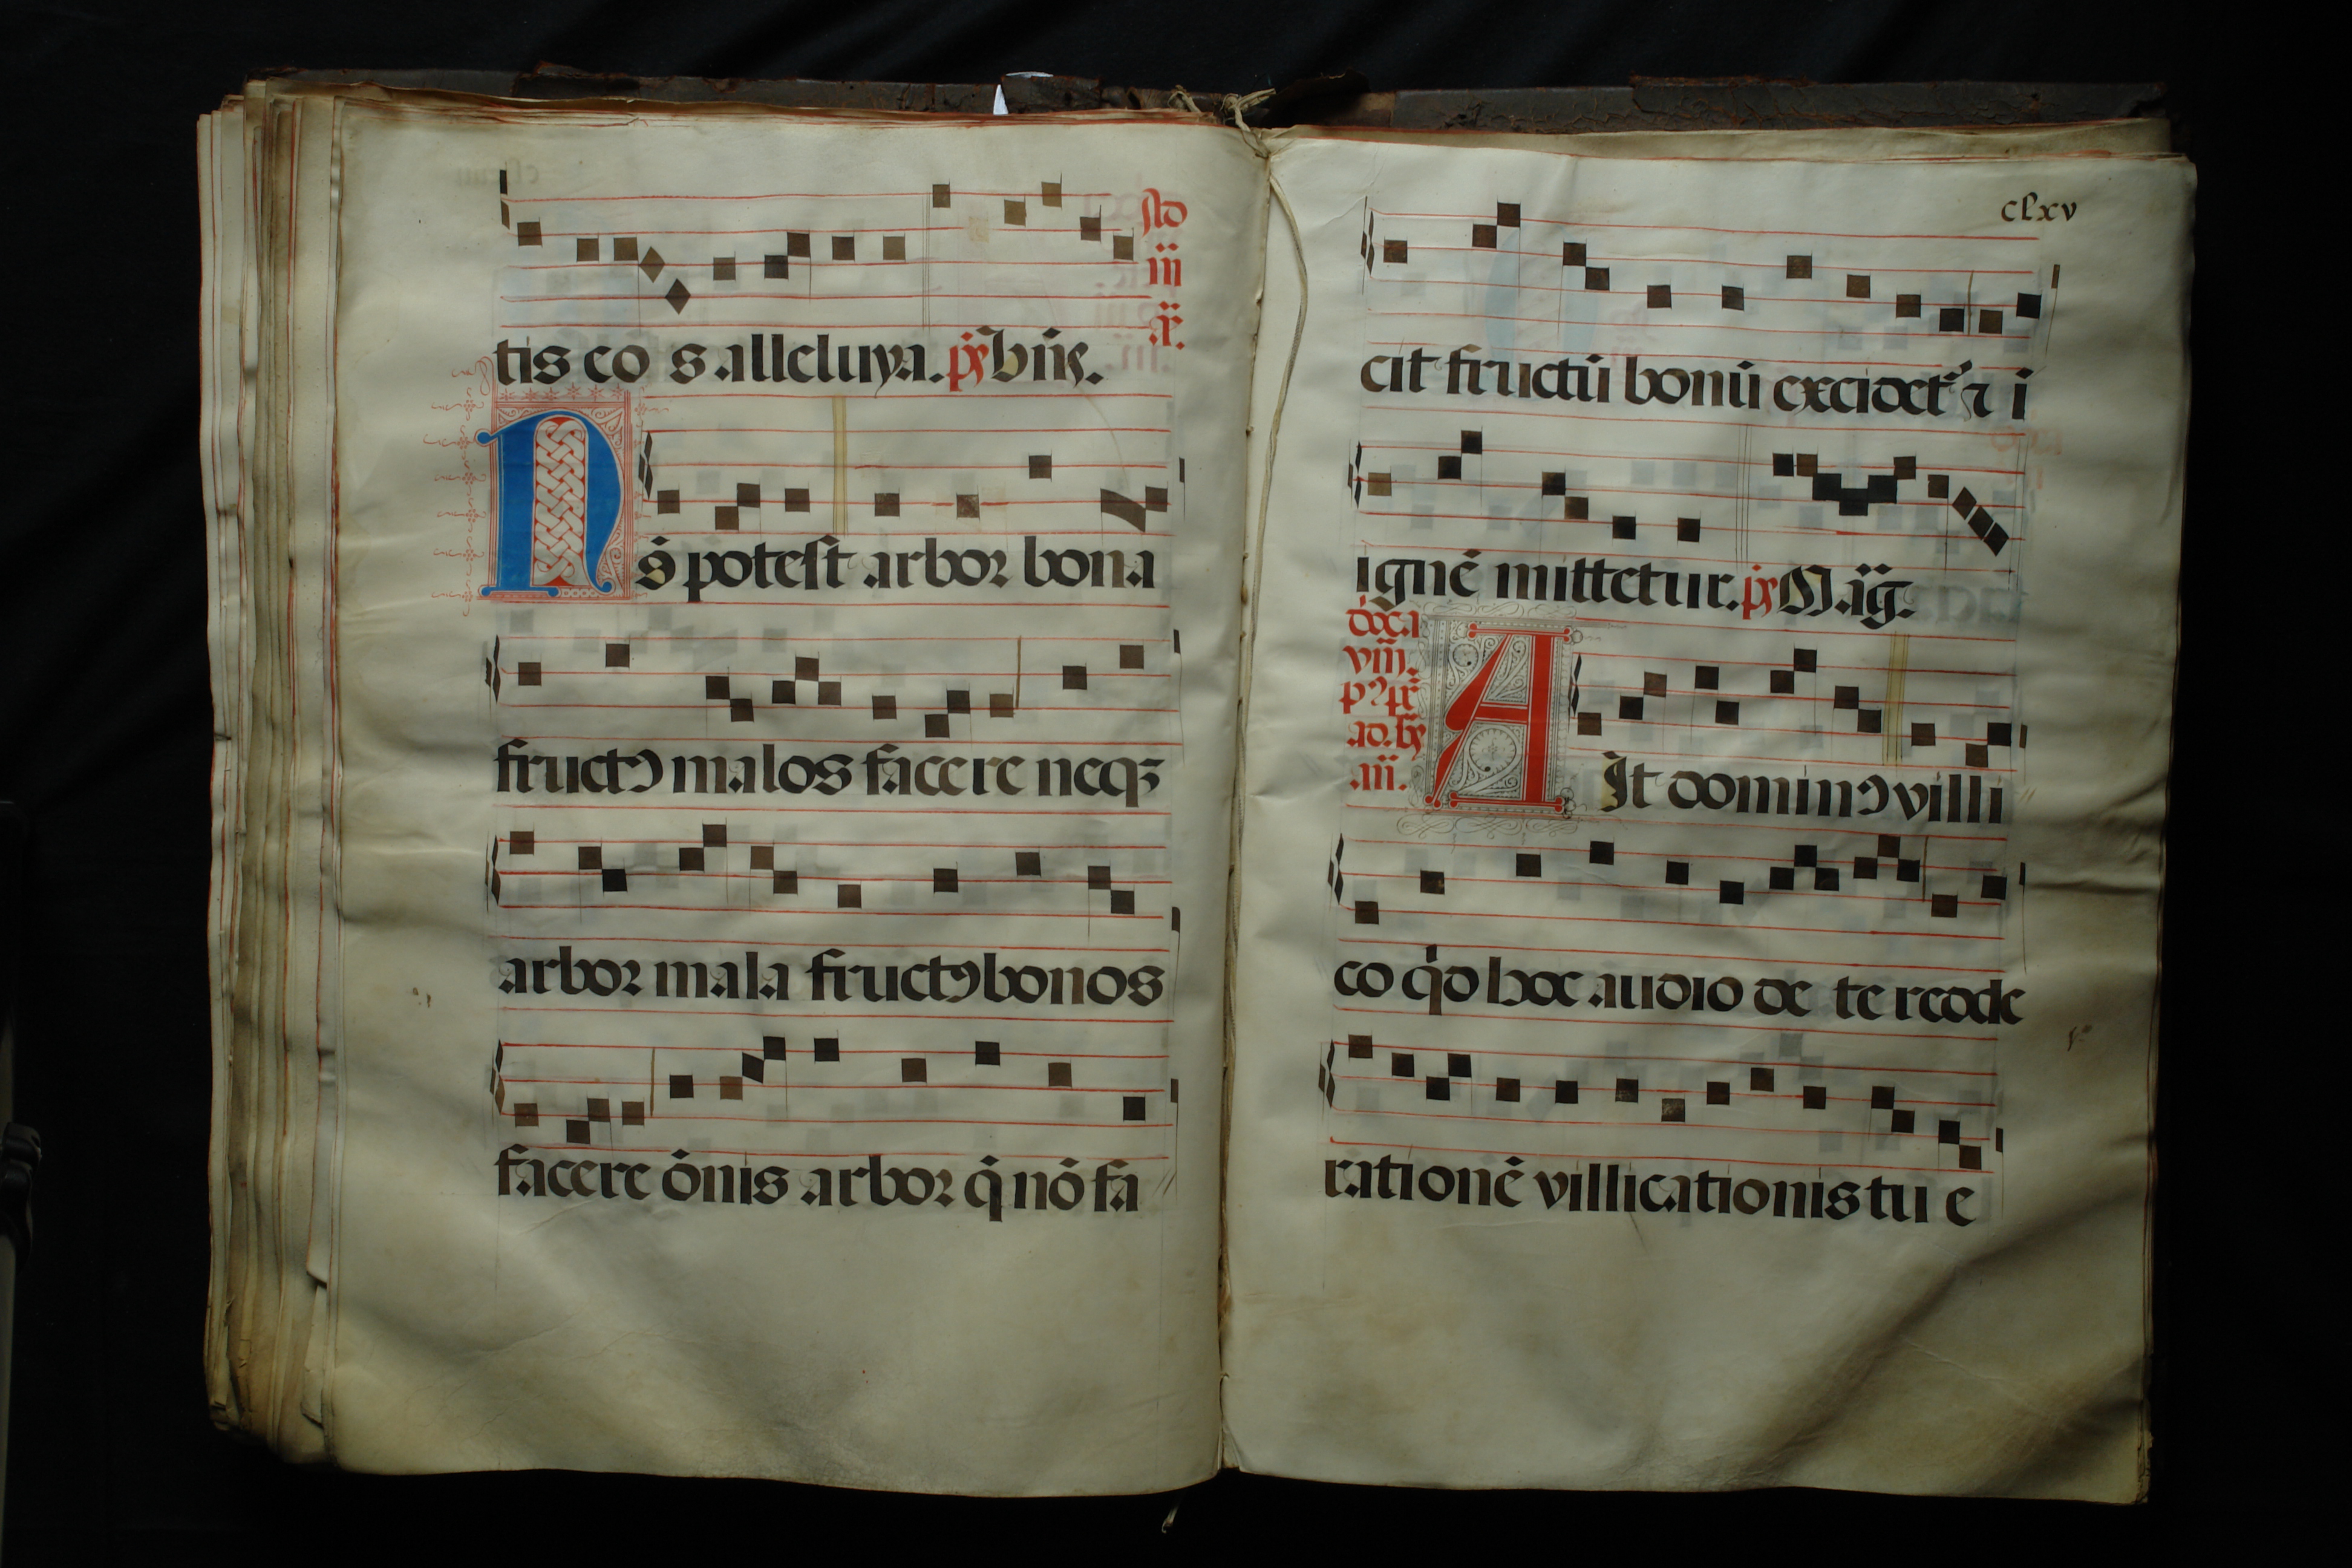 tis eos alleluya. ps Bn̄s.
scd
iii
x̄.
Nō potest arbor bona
fructꝰ malos facere neqꝫ
arbor mala fructꝰ bonos
facere ōnis arbor q̇ nō fa
clxv
cit fructū bonū excidet᷑ ⁊ i
ignē mittetur. ps Māg.
viii.
AIt dominꝰ villi
co q̇d hoc audio de te redde
rationē villicationis tue